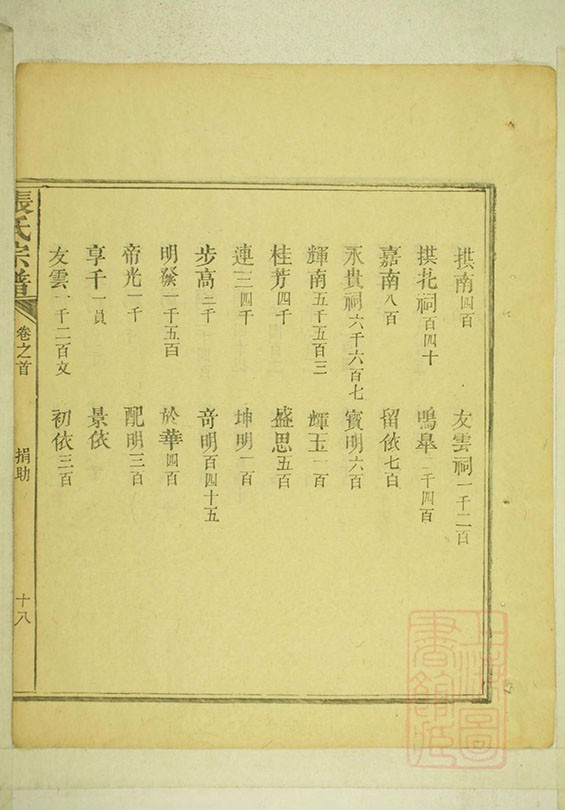 拱南四百　友雲祠一千二百
拱北祠百四十　鳴皋二千四百
嘉南八百　留依七百
永貴祠六千六百七　賓明六百
輝南五千五百三　輝玉一百
桂芳四千　盛思五百
連三四千　坤明一百
步高二千　奇明百四十五
明發一千五百　於華四百
帝光一千　配明三百
享千一員　景依
友雲一千二百文　初依三百
張氏宗譜　卷之首　捐助　十八
上海圖書館藏